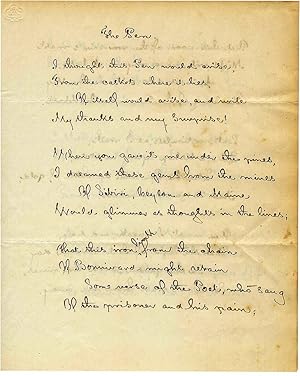 The Pen
I thought this Pen would arise
From the casket where it lies
Of itself would arise, and write
My thanks and my Surprise!
When you gave it me under the pines,
I dreamed these gems from the mines
Of Siberia, Ceylon and Maine
Would glimmer as thoughts in the lines;
That this iron link from the chain
Of Bonnivard might retain
Some verse of the Poet, who sang
Of the prisoner and his pain;